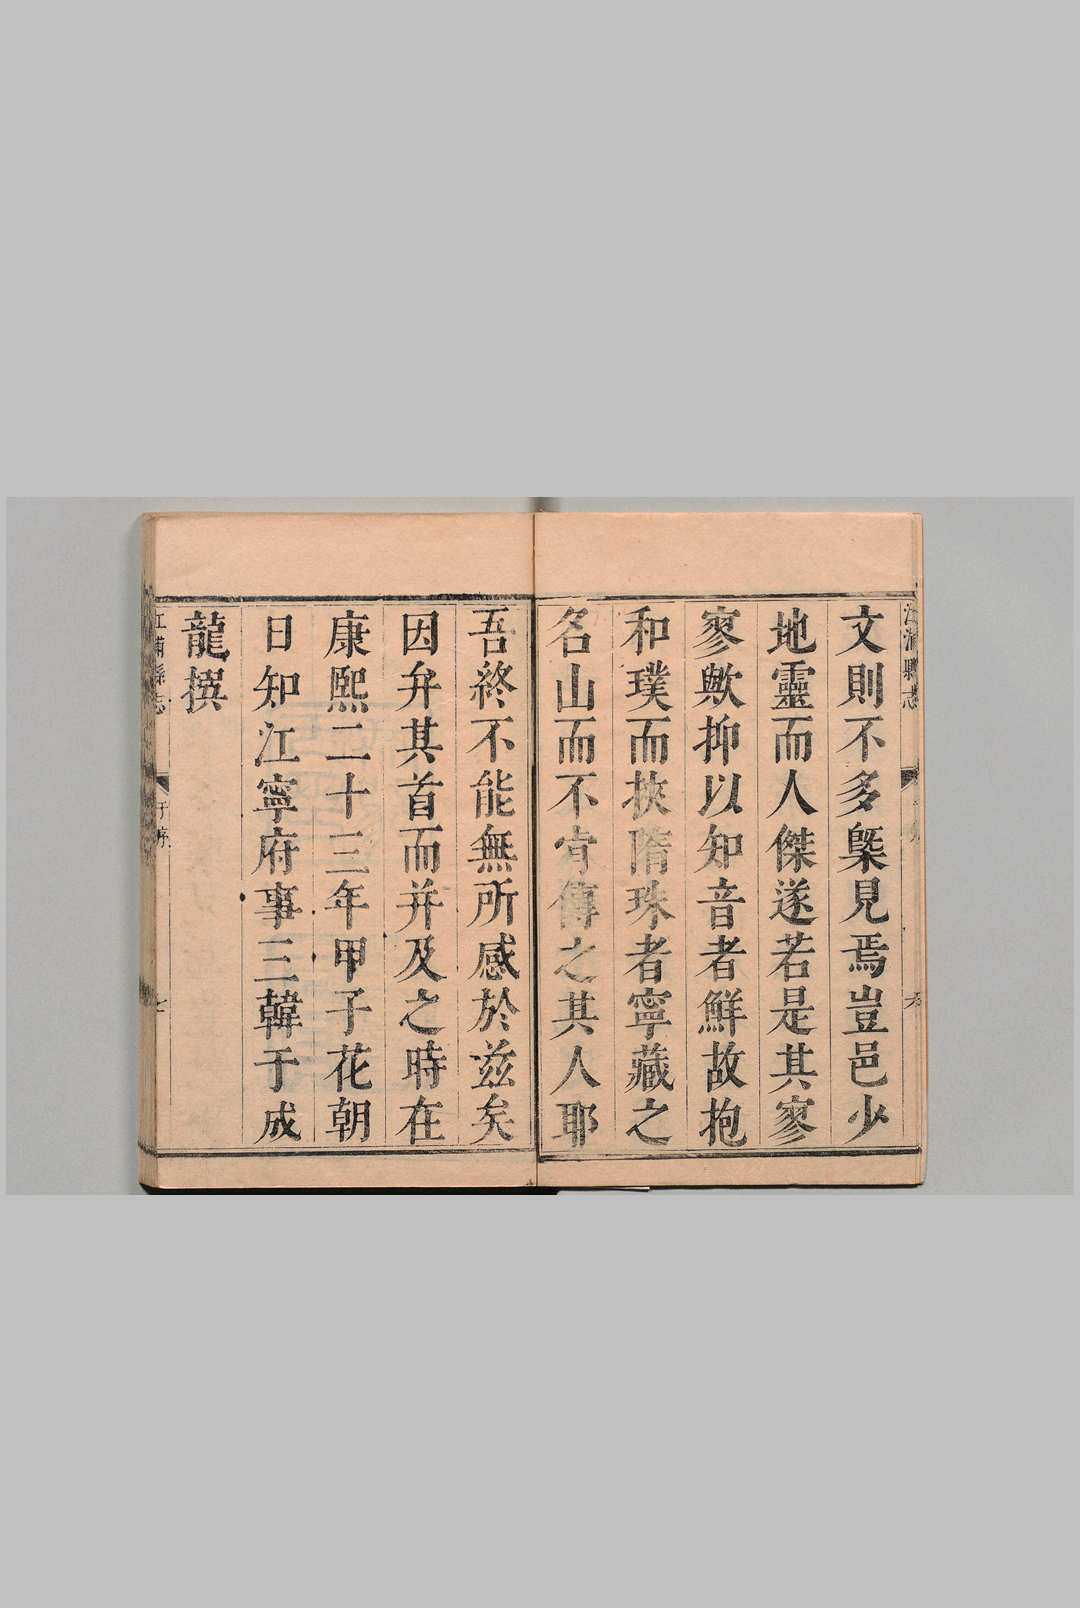 江浦縣志
文則不多槩見焉豈邑少
地靈而人傑遂若是其寥
寥歟抑以知音者鮮故抱
和璞而挾隋珠者寧藏之
名山而不肯傳之其人耶
吾終不能無所感於兹矣
因弁其首而并及之時在
康熙二十三年甲子花朝
日知江寧府事三韓于成
龍撰
江浦縣志
于序
七